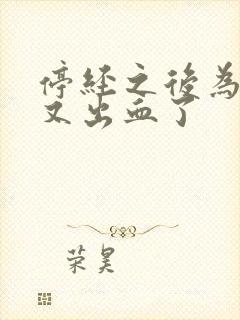 停經之後為
又出血了
荣昊